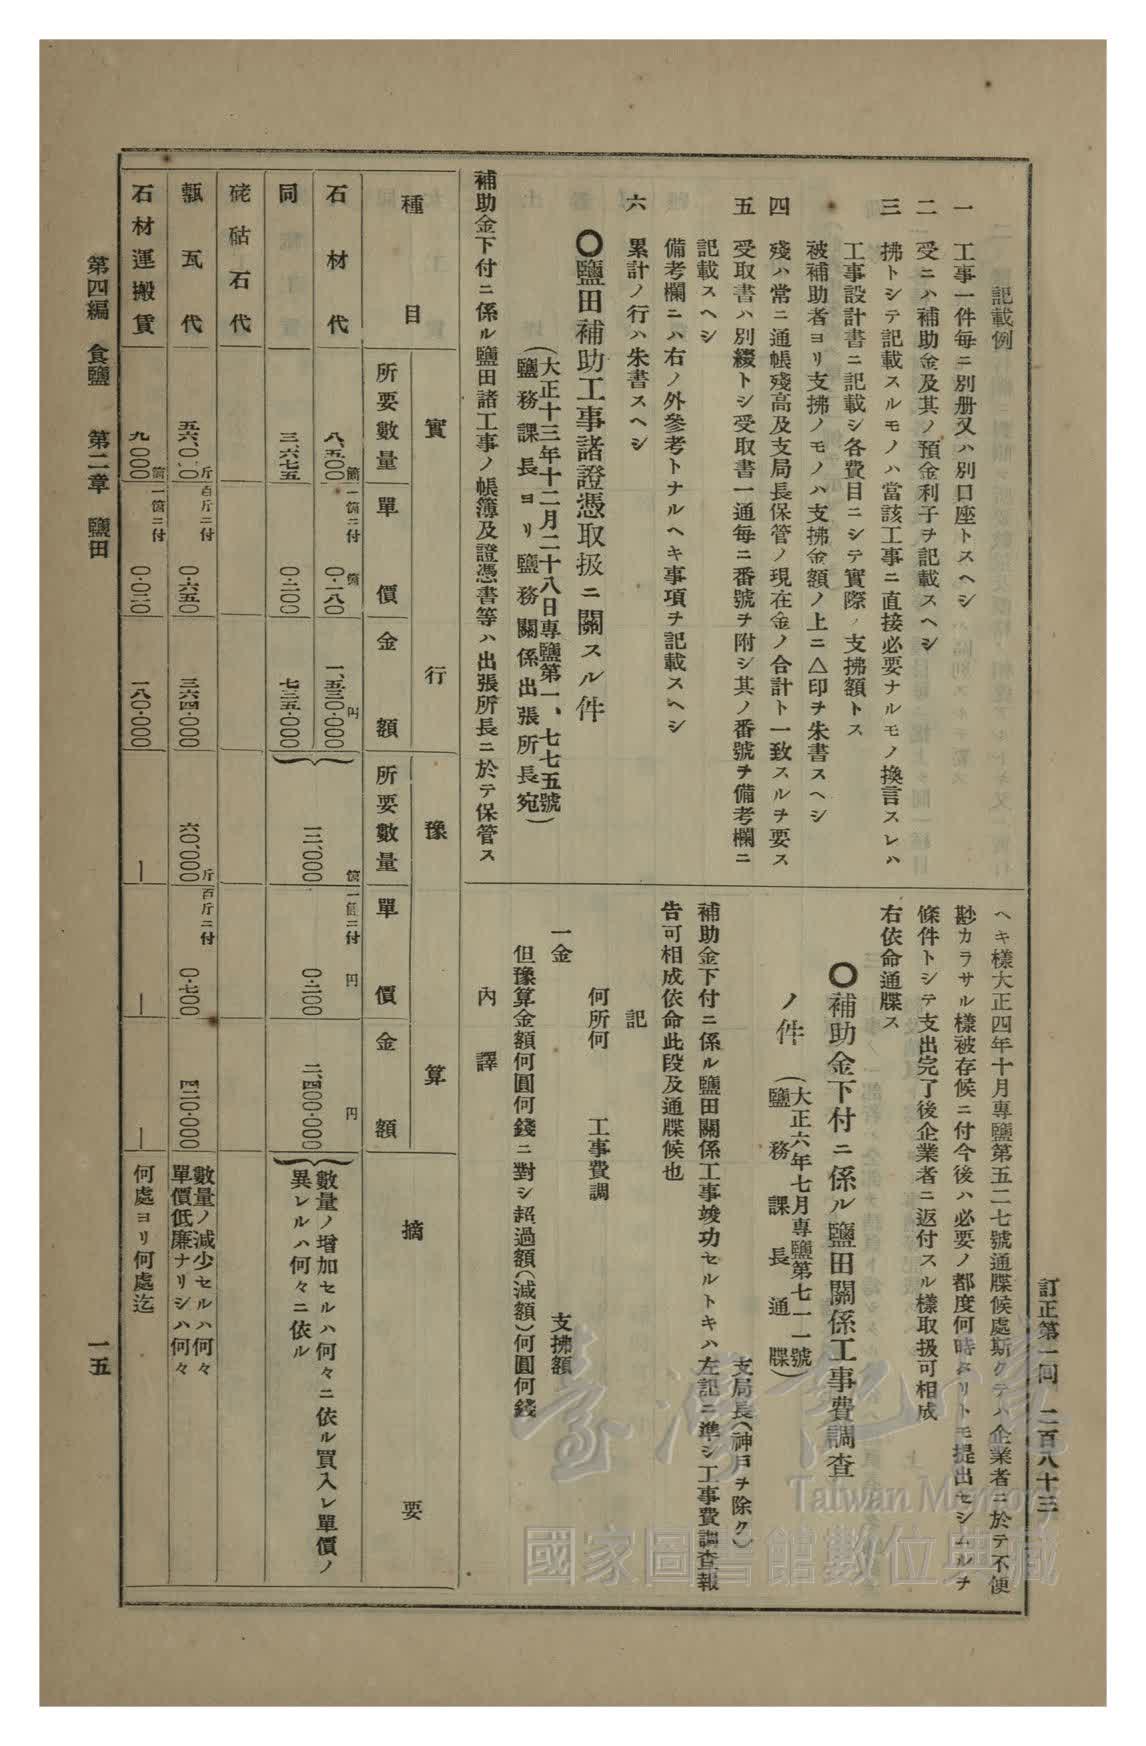 訂正第一回 二百八十三
記載例
一 工事一件每ニ別册又ハ別口座トスヘシ
二 受ニハ補助金及其ノ預金利子ヲ記載スヘシ
三 拂トシテ記載スルモノハ當該工事ニ直接必要ナルモノ換言スレハ
工事設計書ニ記載シ各費目ニシテ實際ノ支拂額トス
被補助者ヨリ支拂ノモノハ支拂金額ノ上ニ△印ヲ朱書スヘシ
四 殘ハ常ニ通帳殘高及支局長保管ノ現在金ノ合計ト一致スルヲ要ス
五 受取書ハ別綴トシ受取書一通每ニ番號ヲ附シ其ノ番號ヲ備考欄ニ
記載スヘシ
備考欄ニハ右ノ外參考トナルヘキ事項ヲ記載スヘシ
六 累計ノ行ハ朱書スヘシ
〇鹽田補助工事諸證憑取扱ニ關スル件
(大正十三年十二月二十八日專鹽第一、七七五號
鹽務課長ヨリ鹽務關係出張所長宛)
補助金下付ニ係ル鹽田諸工事ノ帳簿及證憑書等ハ出張所長ニ於テ保管ス
ヘキ樣大正四年十月專鹽第五二七號通牒候處斯クテハ企業者ニ於テ不便
尠カラサル樣被存候ニ付今後ハ必要ノ都度何時タリトモ提出セシムルヲ
條件トシテ支出完了後企業者ニ返付スル樣取扱可相成
右依命通牒ス
〇補助金下付ニ係ル鹽田關係工事費調查
ノ件
(大正六年七月專鹽第七一一號
鹽務課長通牒)
支局長(神戶ヲ除ク)
補助金下付ニ係ル鹽田關係工事竣功セルトキハ左記ニ準シ工事費調查報
告可相成依命此段及通牒候也
記
何所何 工事費調
一金 支拂額
但豫算金額何圓何錢ニ對シ超過額(減額)何圓何錢
內譯
種目 實行 豫算 摘要
所要數量 單價 金額 所要數量 單價 金額
石材代 八、五〇〇箇 一箇ニ付 〇・一八〇 一、五三〇・〇〇〇円 一二、〇〇〇箇 一箇ニ付 〇・二〇〇円 二、四〇〇・〇〇〇円 數量ノ增加セルハ何々ニ依ル買入レ單價ノ
異レルハ何々ニ依ル
同 三、六七五 〇・二〇〇 七三五・〇〇〇
硓𥑮石代
甎瓦代 五六、〇〇〇斤 百斤ニ付 〇・六五〇 三六四・〇〇〇 六〇、〇〇〇斤 百斤ニ付 〇・七〇〇 四二〇・〇〇〇 數量ノ減少セルハ何々
單價低廉ナリシハ何々
石材運搬賃 九、〇〇〇箇 一箇ニ付 〇・〇二〇 一八〇・〇〇〇 ー ー ー 何處ヨリ何處迄
第四編 食鹽 第二章 鹽田 一五
臺灣記憶
Taiwan Memory
國家圖書館數位典藏